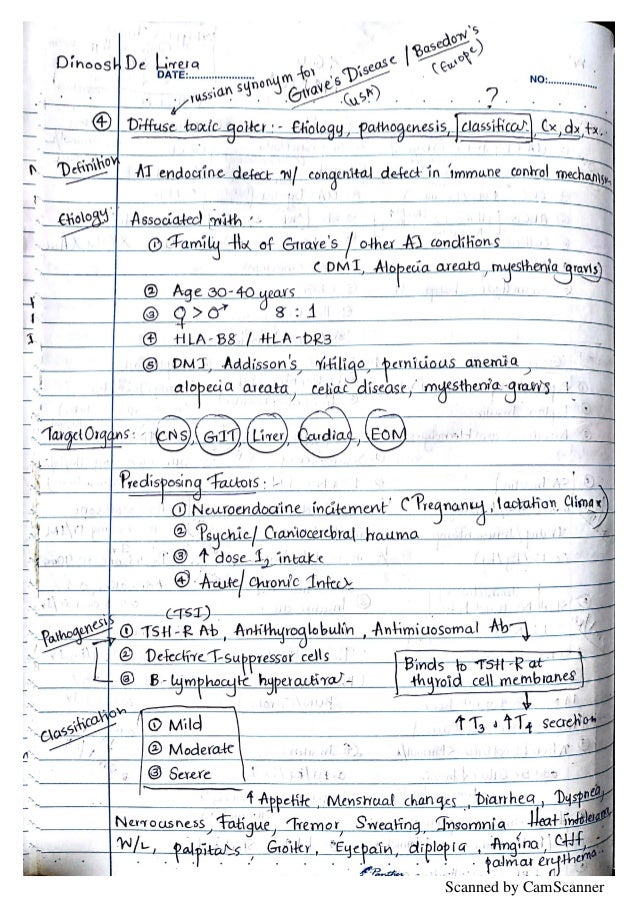 Dinoosh De Livera
DATE:....................
NO:................
russian synonym for Grave's Disease / Basedow's
(USA) (Europe)
?
④ Diffuse toxic goiter :- Etiology, pathogenesis, classifica, Cx, dx, tx.
Definition AI endocrine defect w/ congenital defect in immune control mechanism
Etiology Associated with :-
① Family Hx of Grave's / other AI conditions
(DMI, Alopecia areata, myesthenia gravis)
② Age 30-40 years
③ ♀ > ♂ 8 : 1
④ HLA-B8 / HLA-DR3
⑤ DMI, Addisson's, vitiligo, pernicious anemia
alopecia areata, celiac disease, myesthenia gravis
Target Organs :- CNS, GIT, Liver, Cardiac, EOM
Predisposing Factors :-
① Neuroendocrine incitement (Pregnancy, lactation, Climax)
② Psychic / Craniocerebral trauma
③ ↑ dose I2 intake
④ Acute / Chronic Infecx
Pathogenesis (TSI)
① TSH-R Ab, Antithyroglobulin, Antimicrosomal Ab
② Defective T-suppressor cells
③ B-lymphocyte hyperactiva-
Binds to TSH-R at
thyroid cell membranes
↑ T3, ↑ T4 secretion
Classification
① Mild
② Moderate
③ Severe
↑ Appetite, Menstrual changes, Diarrhea, Dyspnea,
Nervousness, Fatigue, Tremor, Sweating, Insomnia Heat intolerance
W/L, palpita's, Goiter, Eyepain, diplopia, Angina, CHF,
palmar erythema..
Panther
Scanned by CamScanner